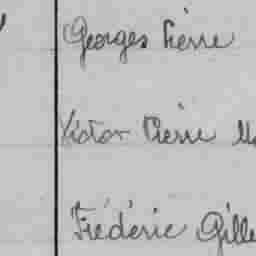 Georges Pierre
Victor Pierre
Frédéric Gille